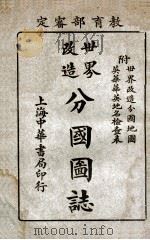 教育部審定
附世界改造分國地圖
英華華英地名檢查表
世界改造
分國圖誌
上海中華書局印行